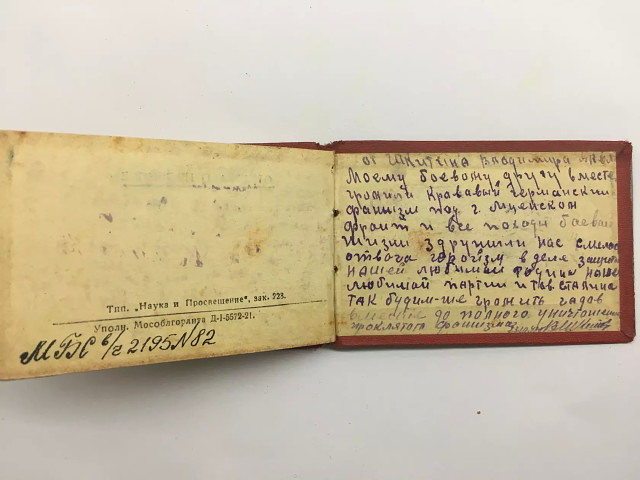 Тип. „Наука и Просвещение", зак. 223.
Уполн. Мособлгорлита Д-1-5572-21.
МБС б/г 2195 N82
от Шкитина Владимира
Моему боевому другу вместе
громили Крававый германский
фашизм под г. Мценском
фронт и все походы боевые
жизни здружили нас смелос
отвага героизм в деле защиты
нашей любимой Родины нашей
любимой партии и тов Сталина
Так будим-же громить гадов
вместе до полного уничтожения
проклятого фашизма